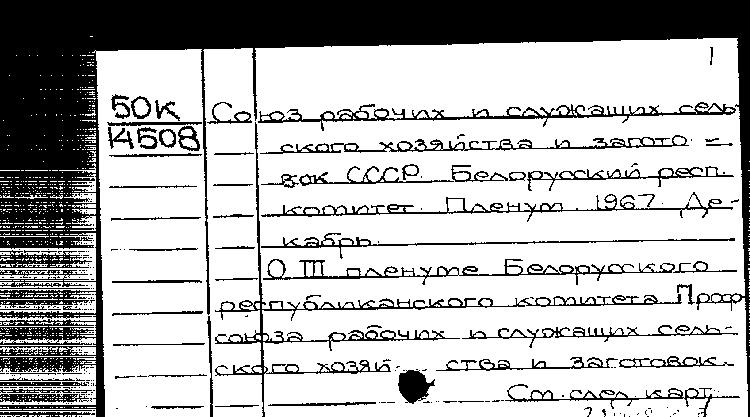 1
50К Союз рабочих и служащих сель-
14508 ского хозяйства и загото-
вок СССР. Белорусский респ.
комитет. Пленум. 1967. Де-
кабрь.
О III пленуме Белорусского
республиканского комитета Проф
союза рабочих и служащих сель-
ского хозяй ства и заготовок.
См. след. карт.